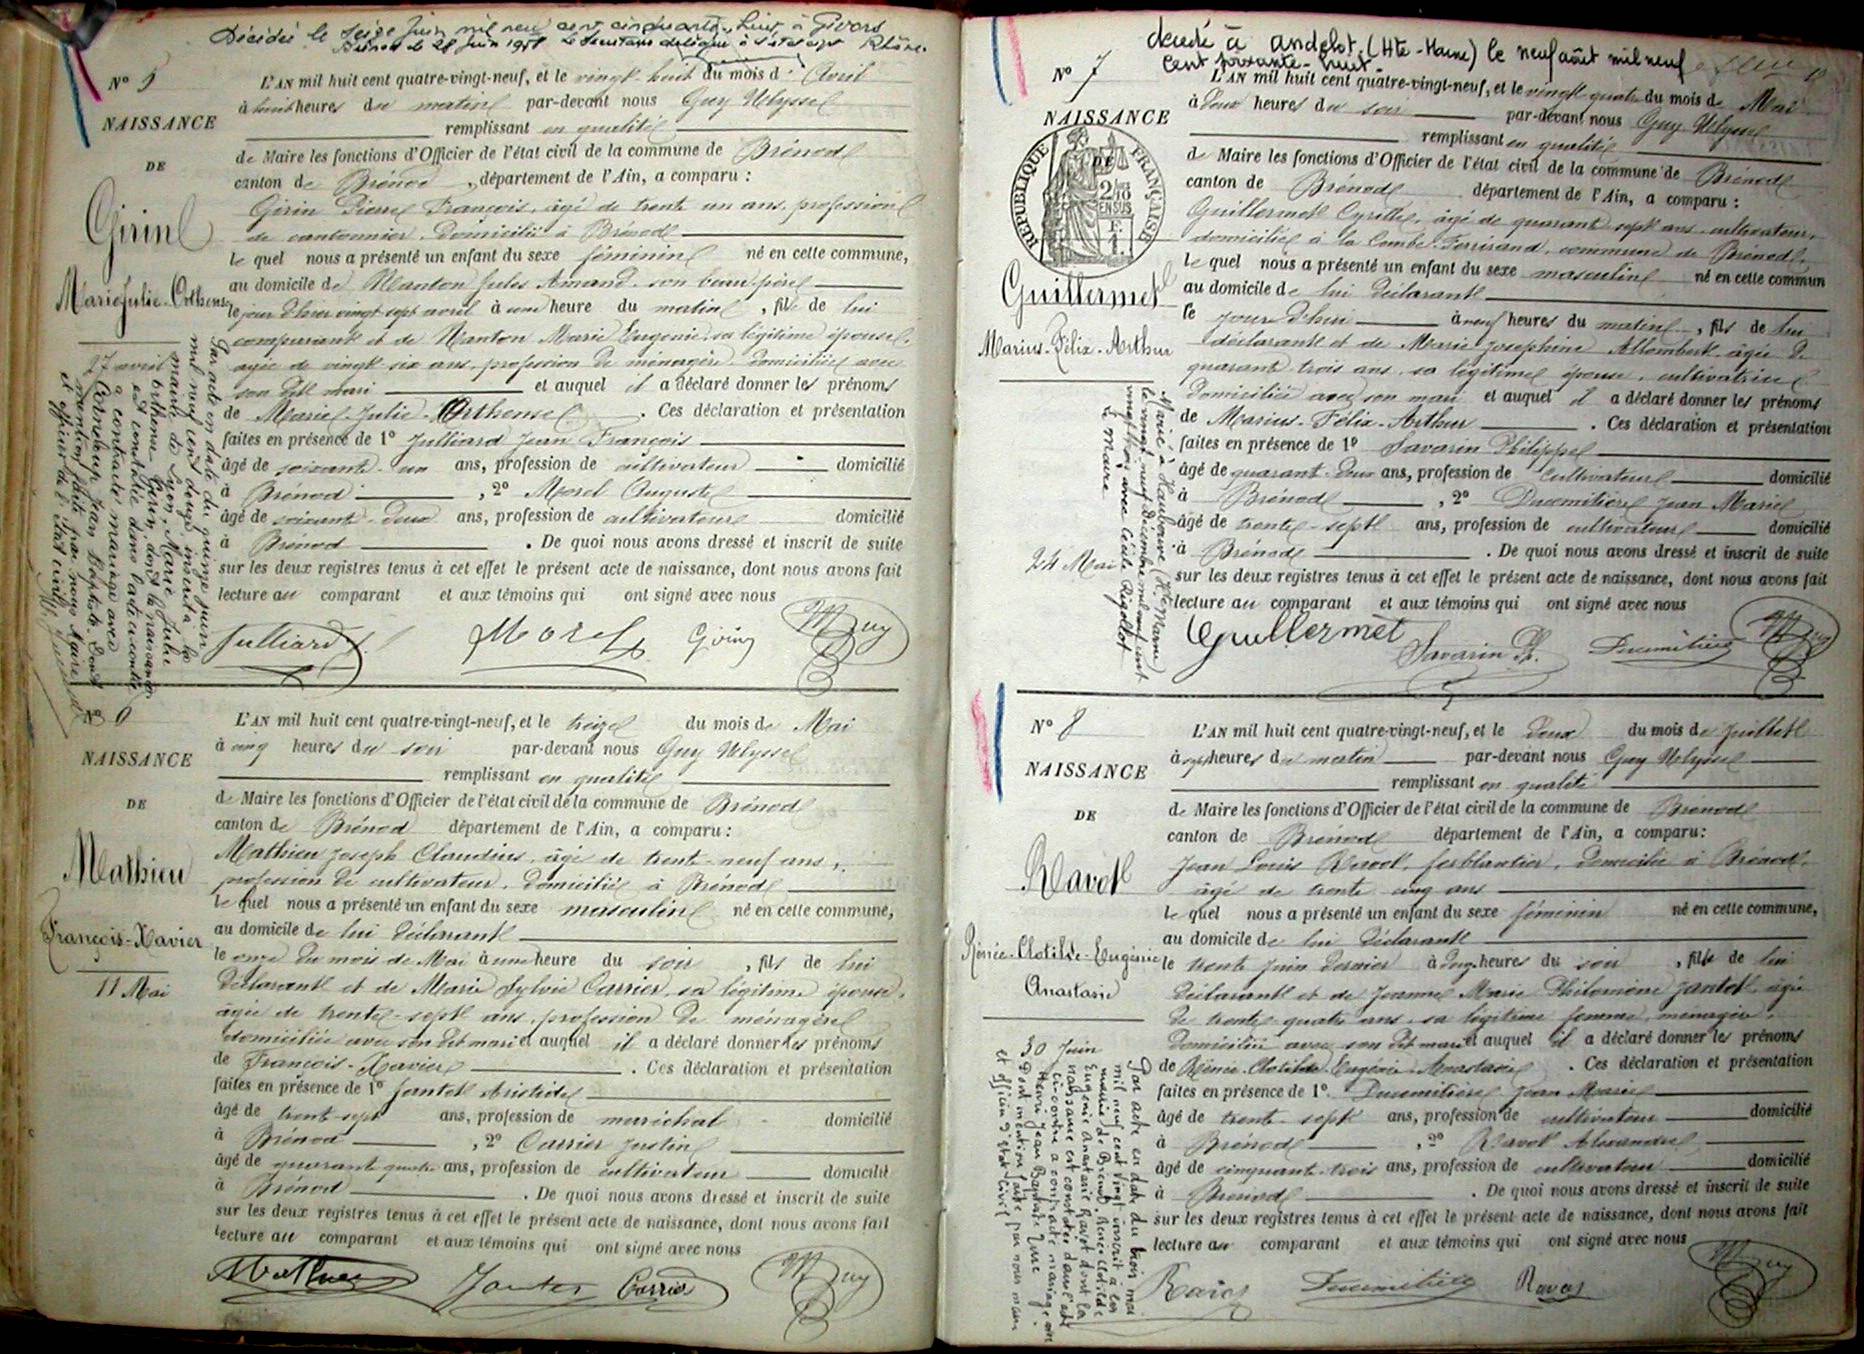 Décédée le seize Juin mil neuf cent cinquante-huit à Givors
Brénod le 28 Juin 1958 Rhône.
N° 5
NAISSANCE
DE
Girin
Marie Julie-Orthense
27 avril
Par acte en date du quinze juin
mil neuf cent douze, inscrit à la
mairie de Lyon, Marie Julie
Orthense Girin, dont la naissance
est constatée dans l'acte ci-contre
a contracté mariage avec
Jean Baptiste. Dont
mention faite par nous Maire
et officier de l'état civil
L'AN mil huit cent quatre-vingt-neuf, et le vingt huit du mois d'Avril
à huit heures du matin par-devant nous Guy Ulysse
remplissant en qualité
de Maire les fonctions d'Officier de l'état civil de la commune de Brénod
canton de Brénod, département de l'Ain, a comparu :
Girin Pierre François, âgé de trente un ans, profession
de cantonnier, domicilié à Brénod
le quel nous a présenté un enfant du sexe féminin né en cette commune,
au domicile de Manton Jules Amand son beau-père
le jour d'hier vingt sept avril à une heure du matin, fille de lui
comparant et de Manton Marie Eugénie, sa légitime épouse,
agée de vingt six ans, profession de ménagère domiciliée avec
son dit mari et auquel il a déclaré donner les prénoms
de Marie-Julie-Orthense. Ces déclaration et présentation
faites en présence de 1° Julliard Jean François
âgé de soixante-un ans, profession de cultivateur domicilié
à Brénod, 2° Morel Auguste
âgé de soixante-deux ans, profession de cultivateur domicilié
à Brénod. De quoi nous avons dressé et inscrit de suite
sur les deux registres tenus à cet effet le présent acte de naissance, dont nous avons fait
lecture au comparant et aux témoins qui ont signé avec nous
Julliard Morel Girin Guy
N° 6
NAISSANCE
DE
Mathieu
François-Xavier
11 Mai
L'AN mil huit cent quatre-vingt-neuf, et le treize du mois de Mai
à cinq heures du soir par-devant nous Guy Ulysse
remplissant en qualité
de Maire les fonctions d'Officier de l'état civil de la commune de Brénod
canton de Brénod département de l'Ain, a comparu :
Mathieu Joseph Claudius, âgé de trente-neuf ans,
profession de cultivateur, domicilié à Brénod
le quel nous a présenté un enfant du sexe masculin né en cette commune,
au domicile de lui déclarant
le onze du mois de Mai à une heure du soir, fils de lui
déclarant et de Marie Sylvie Carrier, sa légitime épouse,
âgée de trente-sept ans, profession de ménagère
domiciliée avec son dit mari et auquel il a déclaré donner les prénoms
de François-Xavier. Ces déclaration et présentation
faites en présence de 1° Jantet Aristide
âgé de trente-sept ans, profession de maréchal domicilié
à Brénod, 2° Carrier Justin
âgé de quarante quatre ans, profession de cultivateur domicilié
à Brénod. De quoi nous avons dressé et inscrit de suite
sur les deux registres tenus à cet effet le présent acte de naissance, dont nous avons fait
lecture au comparant et aux témoins qui ont signé avec nous
Mathieu Jantet Carrier Guy
décédé à Andelot (Hte-Marne) le neuf août mil neuf
cent soixante-huit
N° 7
NAISSANCE
DE
RÉPUBLIQUE FRANÇAISE
Guillermet
Marius-Félix-Arthur
24 Mai
Marié à (Hte Marne)
le vingt-neuf Décembre mil neuf cent
vingt trois avec Cécile Rigollot
Le Maire
L'AN mil huit cent quatre-vingt-neuf, et le vingt quatre du mois de Mai
à deux heures du soir par-devant nous Guy Ulysse
remplissant en qualité
de Maire les fonctions d'Officier de l'état civil de la commune de Brénod
canton de Brénod département de l'Ain, a comparu :
Guillermet Cyrille, âgé de quarante sept ans, cultivateur,
domicilié à la Combe-Ferrirand, commune de Brénod,
le quel nous a présenté un enfant du sexe masculin né en cette commun
au domicile de lui déclarant
le jour d'hui à neuf heures du matin, fils de lui
déclarant et de Marie Josephine Allombert, âgée de
quarante trois ans, sa légitime épouse, cultivatrice
domiciliée avec son mari et auquel il a déclaré donner les prénoms
de Marius-Félix-Arthur. Ces déclaration et présentation
faites en présence de 1° Savarin Philippe
âgé de quarante-deux ans, profession de cultivateur domicilié
à Brénod, 2° Ducimetière Jean Marie
âgé de trente-sept ans, profession de cultivateur domicilié
à Brénod. De quoi nous avons dressé et inscrit de suite
sur les deux registres tenus à cet effet le présent acte de naissance, dont nous avons fait
lecture au comparant et aux témoins qui ont signé avec nous
Guillermet Savarin Ph. Ducimetière Guy
N° 8
NAISSANCE
DE
Ravot
Rénée-Clotilde-Eugénie
Anastasie
30 Juin
Par acte en date du trois mai
mil neuf cent vingt inscrit à la
mairie de Brénod, Renée Clotilde
Eugénie Anastasie Ravot dont la
naissance est constatée dans l'acte
ci-contre a contracté mariage avec
Henri Jean Baptiste
Dont mention faite par nous maire
et officier d'état-civil
L'AN mil huit cent quatre-vingt-neuf, et le deux du mois de juillet
à sept heures du matin par-devant nous Guy Ulysse
remplissant en qualité
de Maire les fonctions d'Officier de l'état civil de la commune de Brénod
canton de Brénod département de l'Ain, a comparu :
Jean Louis Ravot, ferblantier, domicilié à Brénod,
âgé de trente-cinq ans
le quel nous a présenté un enfant du sexe féminin né en cette commune,
au domicile de lui déclarant
le trente juin dernier à heures du soir, fille de lui
déclarant et de Jeanne Marie Philomène Jantet, âgée
de trente-quatre ans, sa légitime femme, ménagère,
domiciliée avec son dit mari et auquel il a déclaré donner les prénoms
de Rénée-Clotilde-Eugénie-Anastasie. Ces déclaration et présentation
faites en présence de 1° Ducimetière Jean Marie
âgé de trente-sept ans, profession de cultivateur domicilié
à Brénod, 2° Ravot Alexandre
âgé de cinquante-trois ans, profession de cultivateur domicilié
à Brénod. De quoi nous avons dressé et inscrit de suite
sur les deux registres tenus à cet effet le présent acte de naissance, dont nous avons fait
lecture au comparant et aux témoins qui ont signé avec nous
Ravot Ducimetière Ravot Guy